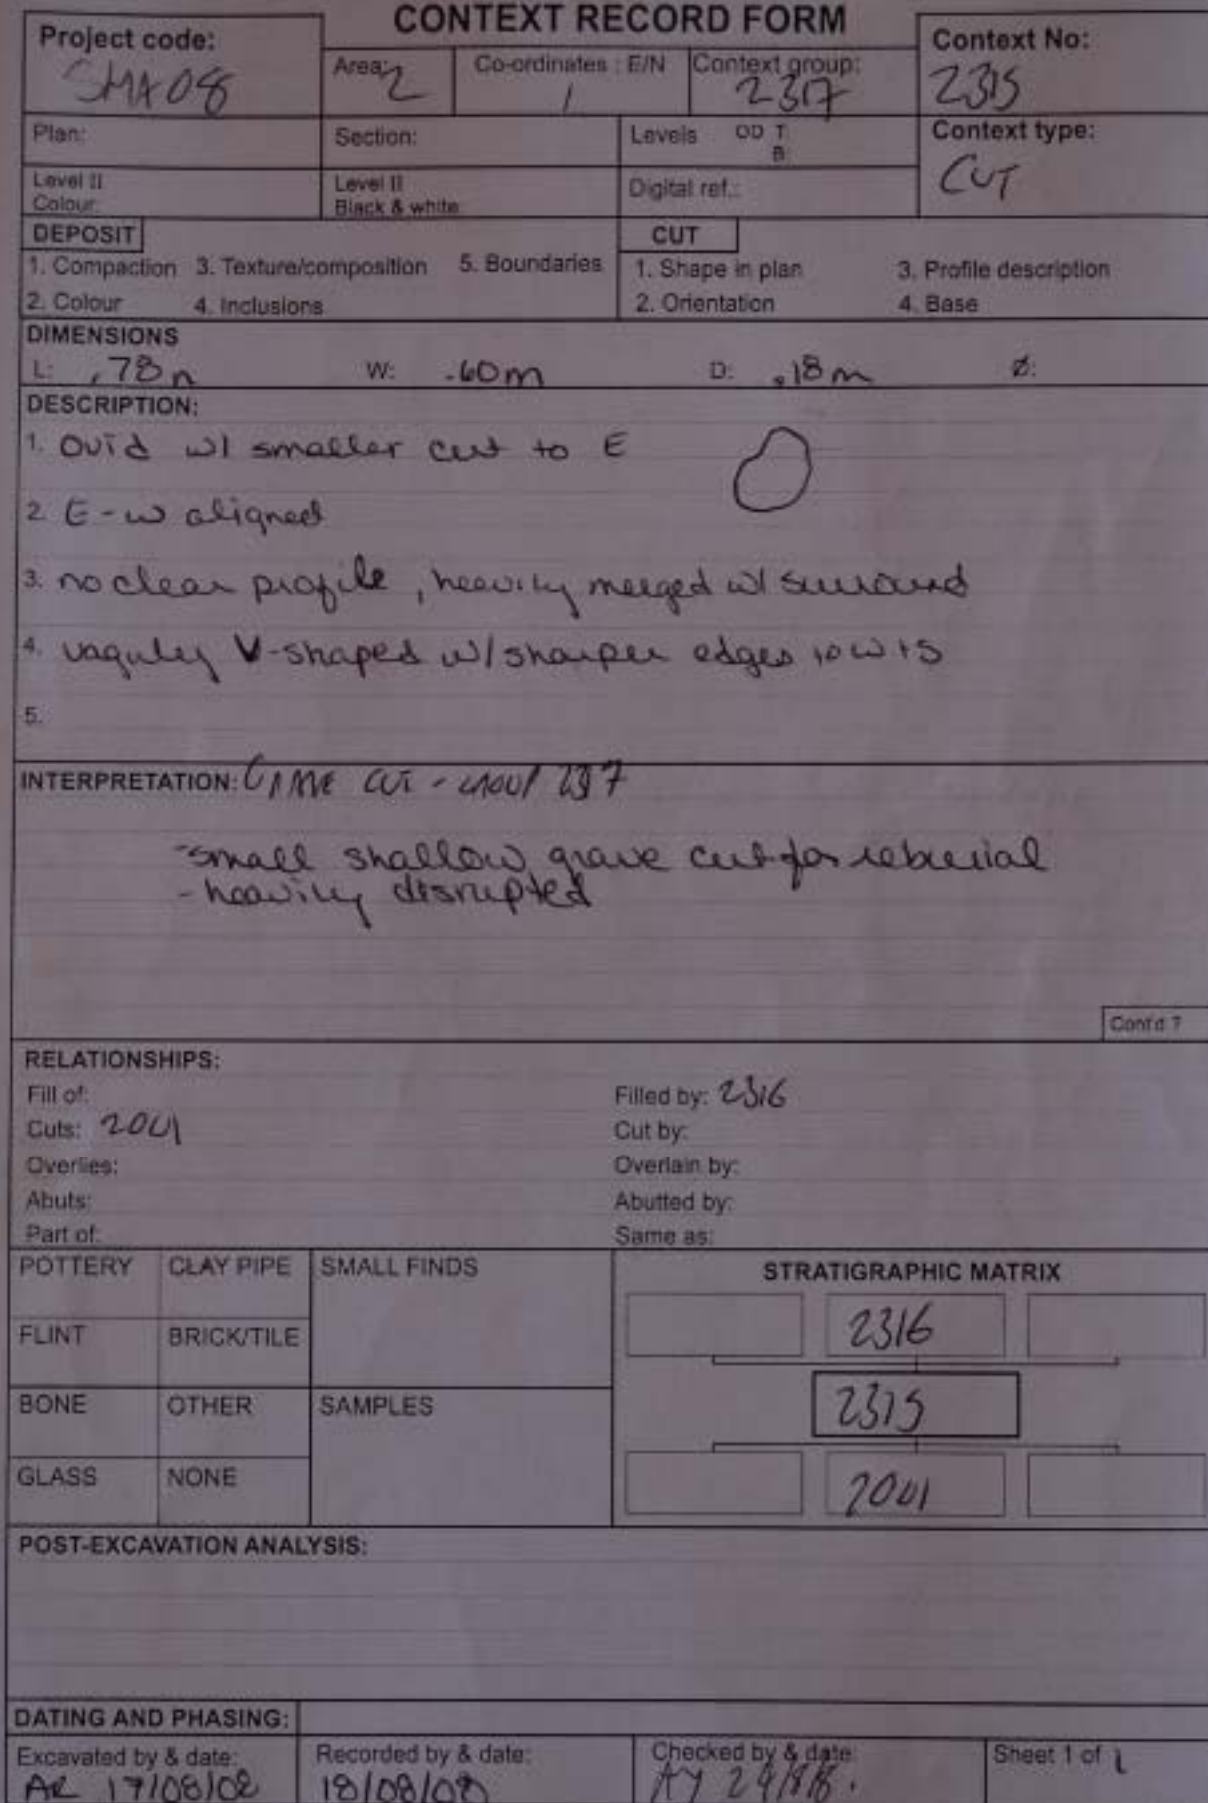 CONTEXT RECORD FORM
Project code:
SMA08
Area: 2
Co-ordinates : E/N
/
Context group:
2317
Context No:
2315
Plan:
Section:
Levels OD T:
B:
Context type:
CUT
Level II
Colour:
Level II
Black & white:
Digital ref.:
DEPOSIT
1. Compaction 3. Texture/composition 5. Boundaries
2. Colour 4. Inclusions
CUT
1. Shape in plan 3. Profile description
2. Orientation 4. Base
DIMENSIONS
L: .78m W: .60m D: .18m Ø:
DESCRIPTION:
1. Ovid w/ smaller cut to E
2. E-W aligned
3. no clear profile, heavily merged w/ surround
4. vaguley V-shaped w/ sharper edges to W + S
5.
INTERPRETATION: GRAVE CUT - GROUP 2317
- small shallow grave cut for reburial
- heavily disrupted
Cont'd ?
RELATIONSHIPS:
Fill of:
Filled by: 2316
Cuts: 2001
Cut by:
Overlies:
Overlain by:
Abuts:
Abutted by:
Part of:
Same as:
POTTERY CLAY PIPE SMALL FINDS
FLINT BRICK/TILE
BONE OTHER SAMPLES
GLASS NONE
STRATIGRAPHIC MATRIX
2316
2315
2001
POST-EXCAVATION ANALYSIS:
DATING AND PHASING:
Excavated by & date:
AR 17/08/08
Recorded by & date:
18/08/08
Checked by & date:
AY
Sheet 1 of 1